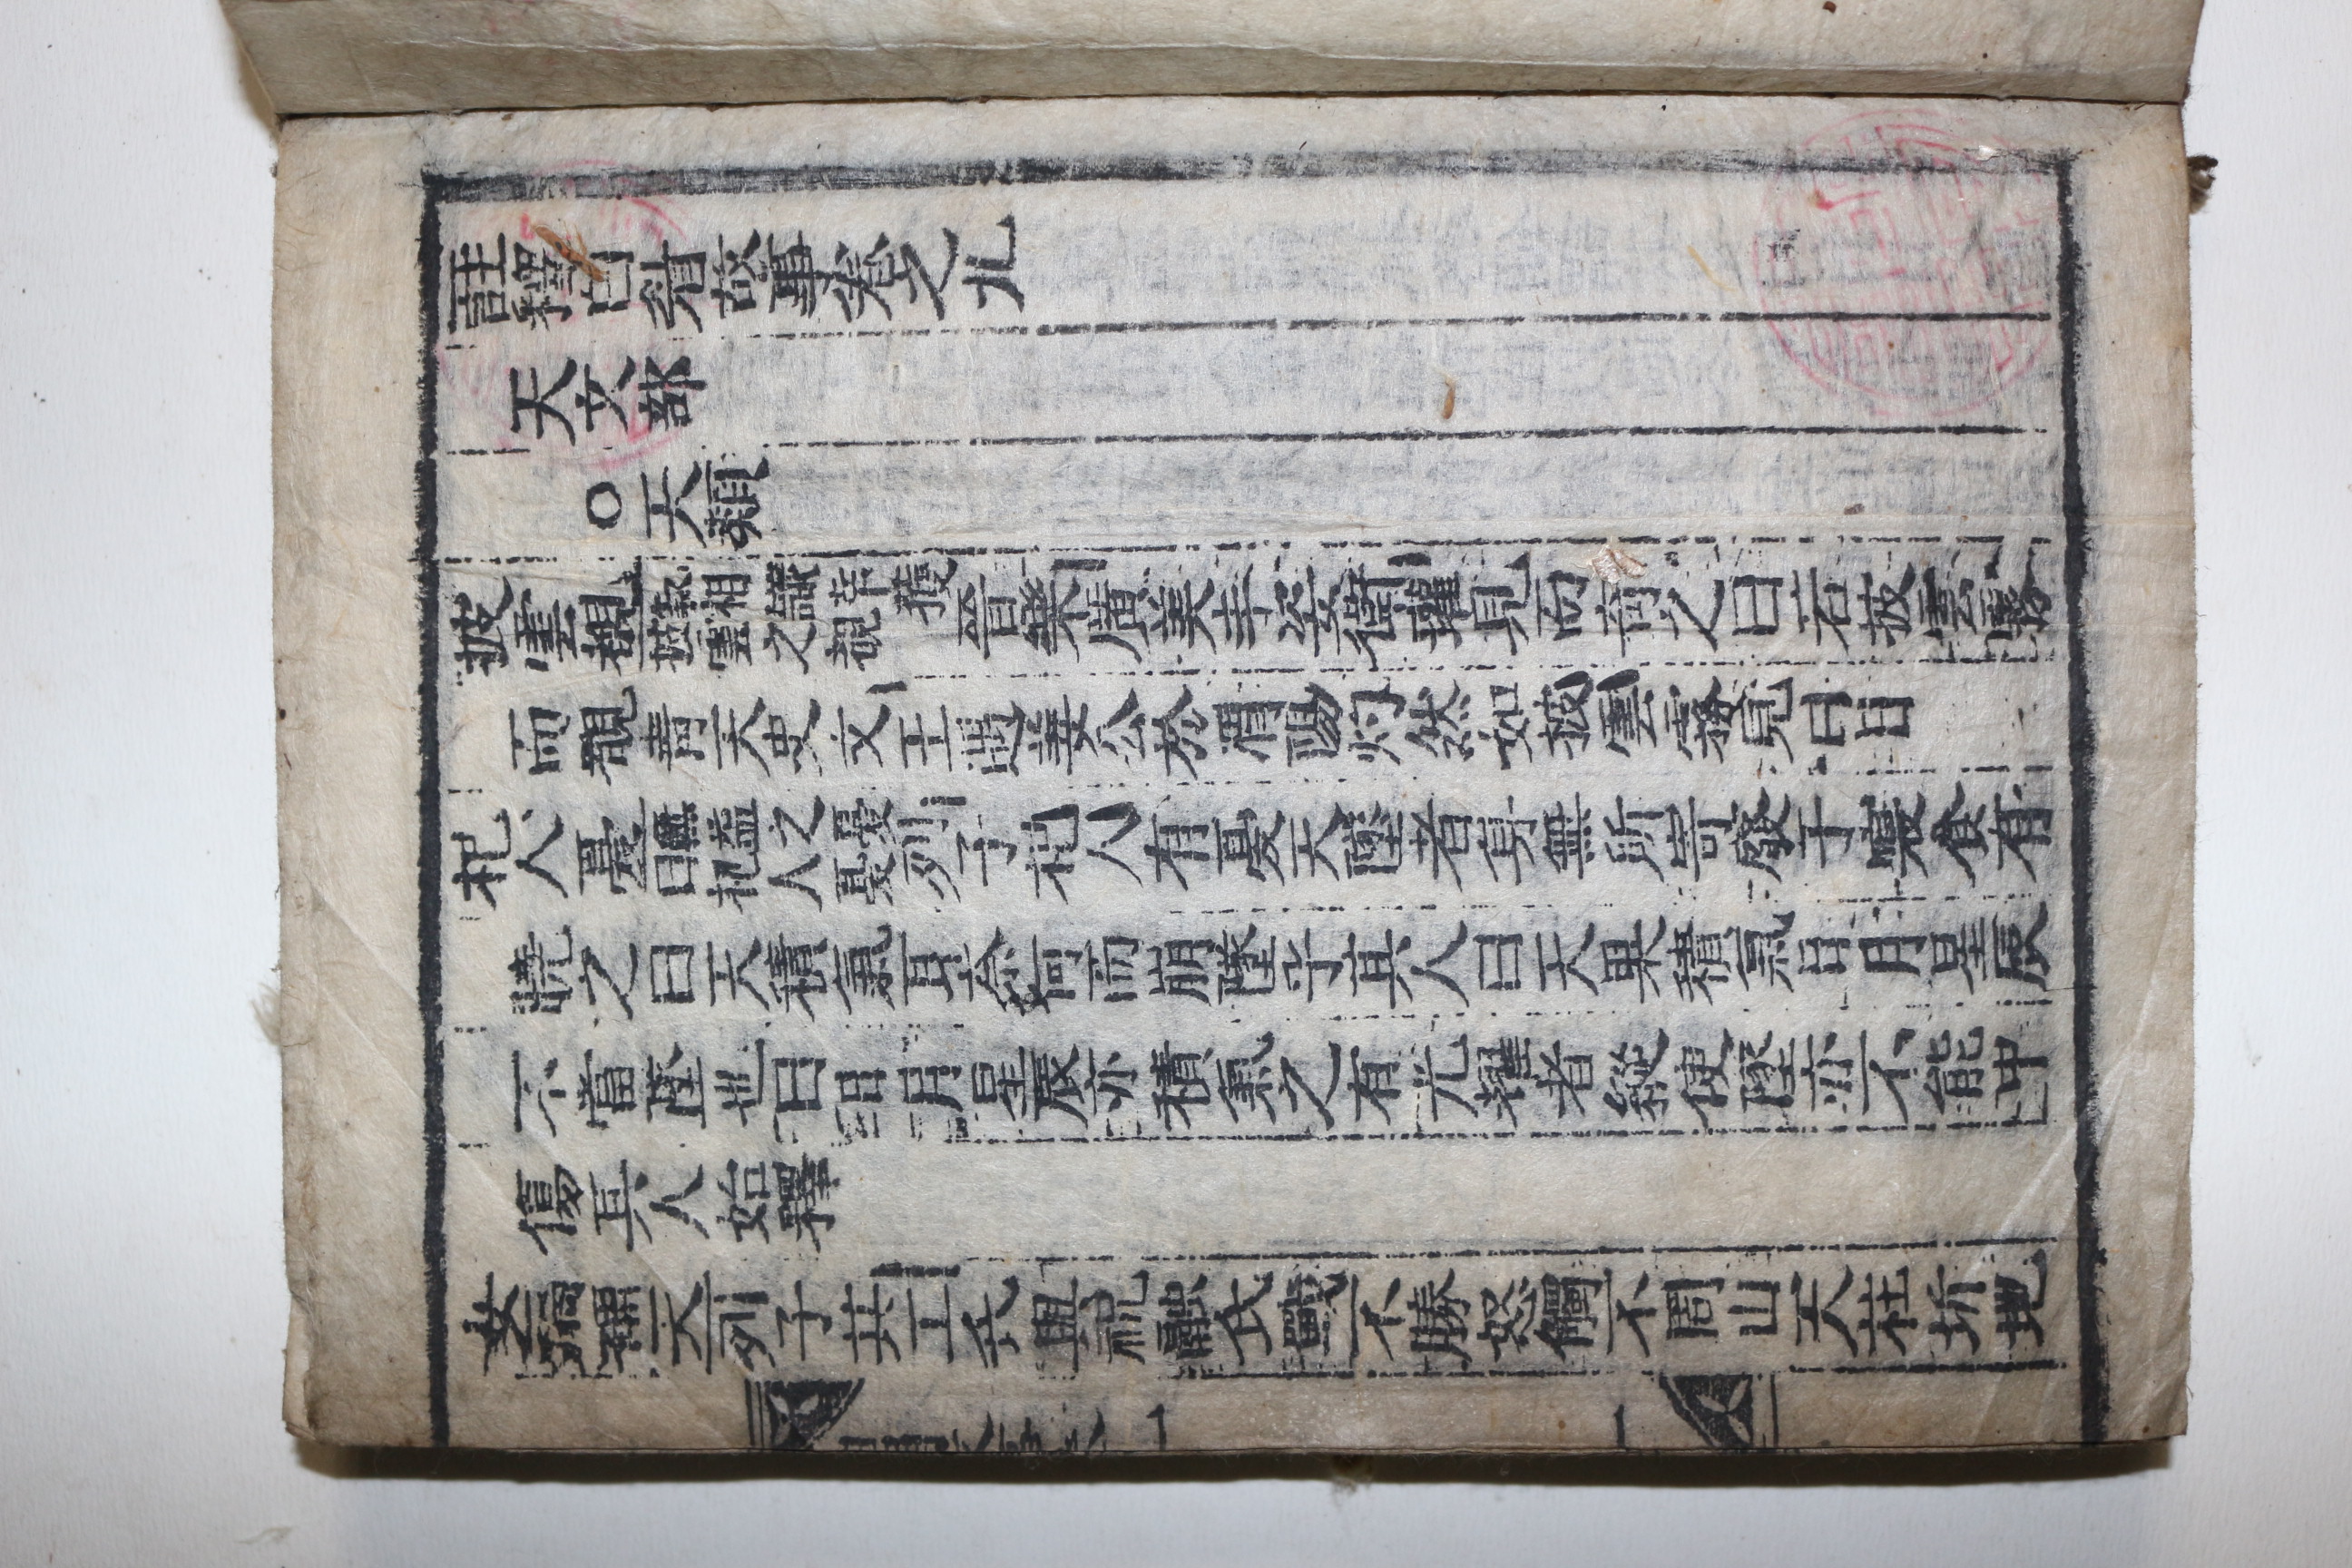 註釋白眉故事卷之九
天文部
○天類
披雲覩敍相識幸獲披雲之覩晉樂廣美丰姿衛瓘見而奇之曰若披雲霧
而覩青天史文王遇姜公於渭陽灼然如披雲霧見白日
杞人憂無益之憂曰杞人憂列子杞人有憂天墜者身無所寄發于寢食有
曉之曰天積氣耳奈何而崩墜乎其人曰天果積氣日月星辰
不當墜也曰日月星辰亦積氣之有光耀者縱使墜亦不能中
傷其人始釋
女媧補天列子共工氏與祝融氏戰不勝怒觸不周山天柱折地